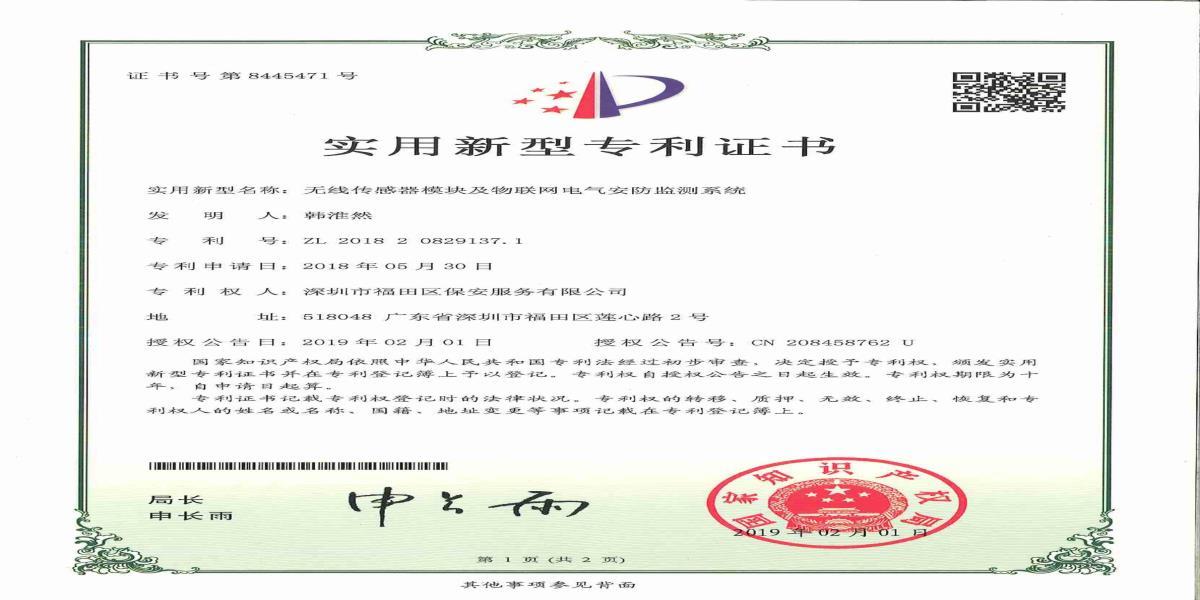 证书号第8445471号
实用新型专利证书
实用新型名称：无线传感器模块及物联网电气安防监测系统
发明人：韩淮然
专利号：ZL 2018 2 0829137.1
专利申请日：2018年05月30日
专利权人：深圳市福田区保安服务有限公司
地址：518048 广东省深圳市福田区莲心路2号
授权公告日：2019年02月01日 授权公告号：CN 208458762 U
国家知识产权局依照中华人民共和国专利法经过初步审查，决定授予专利权，颁发实用
新型专利证书并在专利登记簿上予以登记。专利权自授权公告之日起生效。专利权期限为十
年，自申请日起算。
专利证书记载专利权登记时的法律状况。专利权的转移、质押、无效、终止、恢复和专
利权人的姓名或名称、国籍、地址变更等事项记载在专利登记簿上。
局长
申长雨
申长雨
国家知识产权局
2019年02月01日
第1页(共2页)
其他事项参见背面